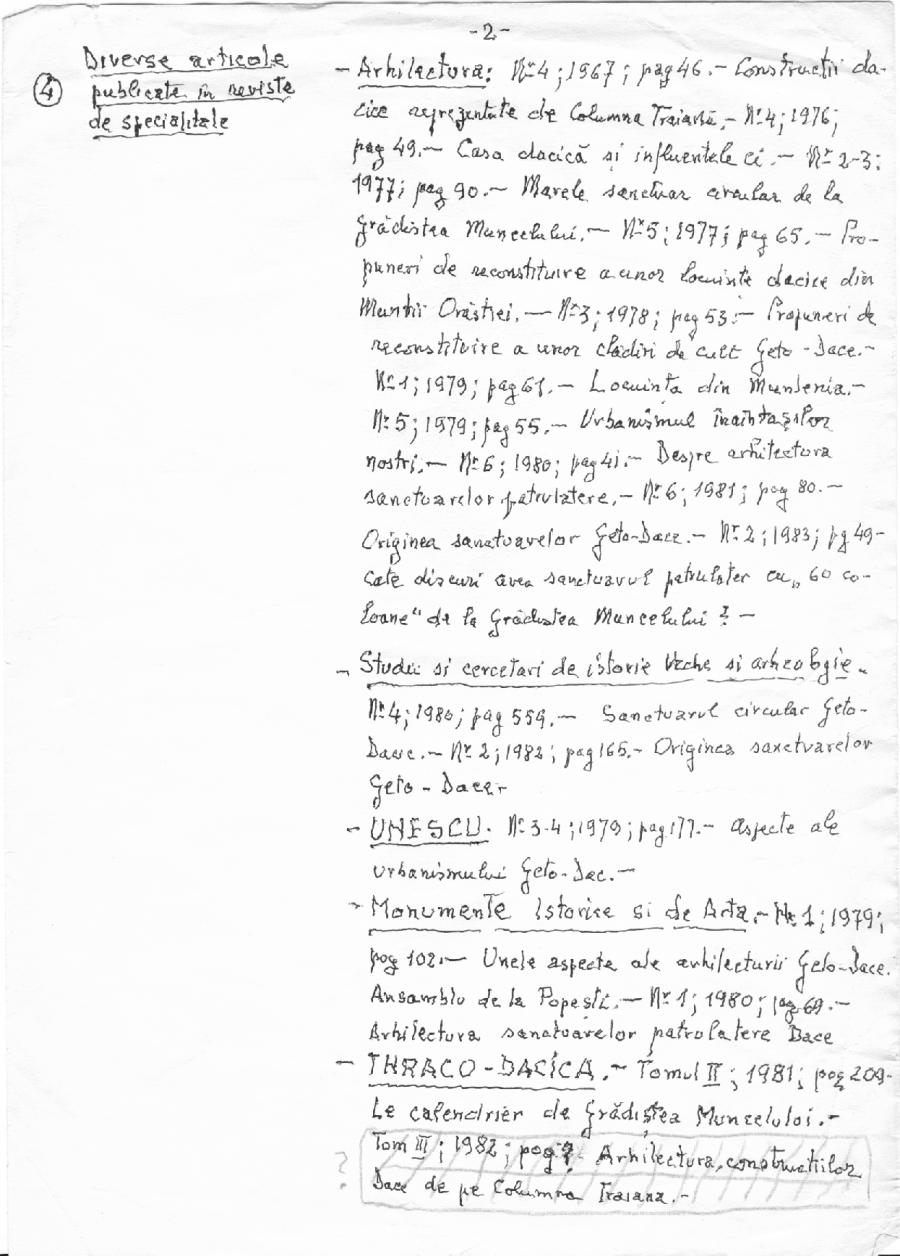 -2-
④ Diverse articole
publicate în reviste
de specialitate
- Arhitectura: Nr4; 1967; pag 46.- Constructii da-
cice reprezentate de Columna Traiană.- Nr.4; 1976;
pag 49.- Casa dacică si influentele ei.- Nr 2-3;
1977; pag 90.- Marele sanctuar circular de la
Grădistea Muncelului.- Nr5; 1977; pag 65.- Pro-
puneri de reconstituire a unor locuinte dacice din
Muntii Orăstiei.- Nr3; 1978; pag 53.- Propuneri de
reconstituire a unor clădiri de cult Geto-Dace.-
Nr1; 1979; pag 61.- Locuinta din Muntenia.-
Nr5; 1979; pag 55.- Urbanismul înaintasilor
nostri.- Nr6; 1980; pag 41.- Despre arhitectura
sanctuarelor patrulatere.- Nr 6; 1981; pag 80.-
Originea sanctuarelor Geto-Dace.- Nr.2; 1983; pg 49-
Cate discuri avea sanctuarul patrulater cu „60 co-
loane" de la Grădistea Muncelului ? -
- Studii si cercetari de istorie veche si arheologie.
Nr4; 1980; pag 559.- Sanctuarul circular Geto-
Dacic.- Nr 2; 1982; pag 165.- Originea sanctuarelor
Geto-Dace.-
- UNESCU. Nr 3-4; 1979; pag 177.- Aspecte ale
urbanismului Geto-Dac.-
- Monumente Istorice si de Arta.- Nr 1; 1979;
pag 102.- Unele aspecte ale arhitecturii Geto-Dace.
Ansamblu de la Popesti.- Nr 1; 1980; pag 69.-
Arhitectura sanctuarelor patrulatere Dace
- THRACO-DACICA.- Tomul II; 1981; pag 209-
Le calendrier de Grădistea Muncelului.-
? Tom III; 1982; pag ? Arhitectura constructiilor
Dace de pe Columna Traiana.-